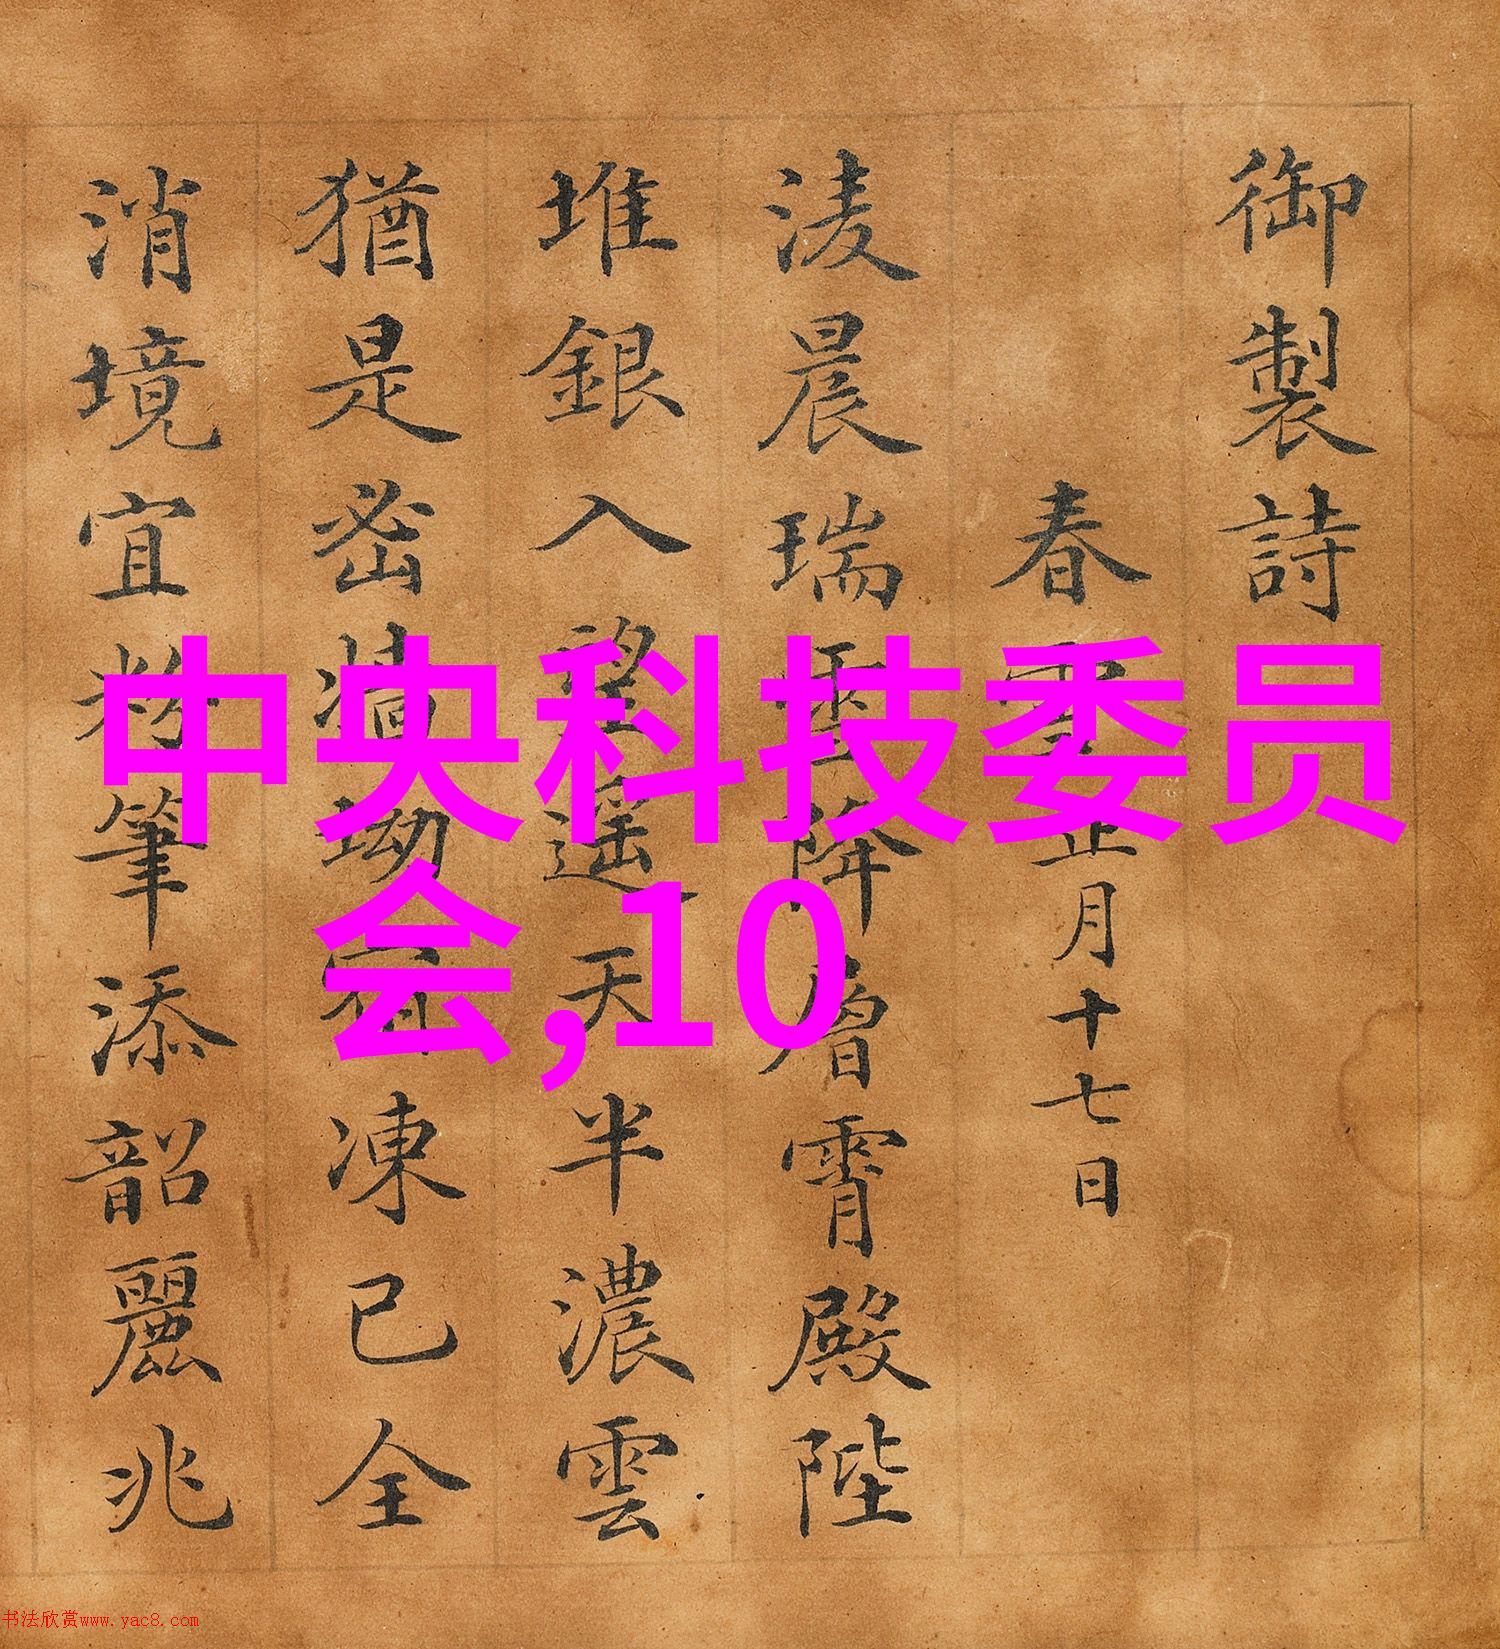 御製詩
春雪正月十七日
淩晨瑞雪降層霄殿陛
堆銀入望遥天半濃雲
猶是密墻坳凍已全
消境宜粉筆添韶麗兆
中央科技委员
会,10
书法欣赏www.yac8.com